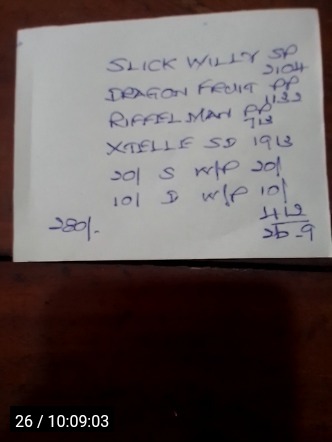 SLICK WILLY SP
2104
DRAGON FRUIT PP
1132
RIFFELMAN PP
713
XTELLE SD 1913
20/ S W/P 20/
10/ D W/P 10/
412
280/-
25-9
26 / 10:09:03